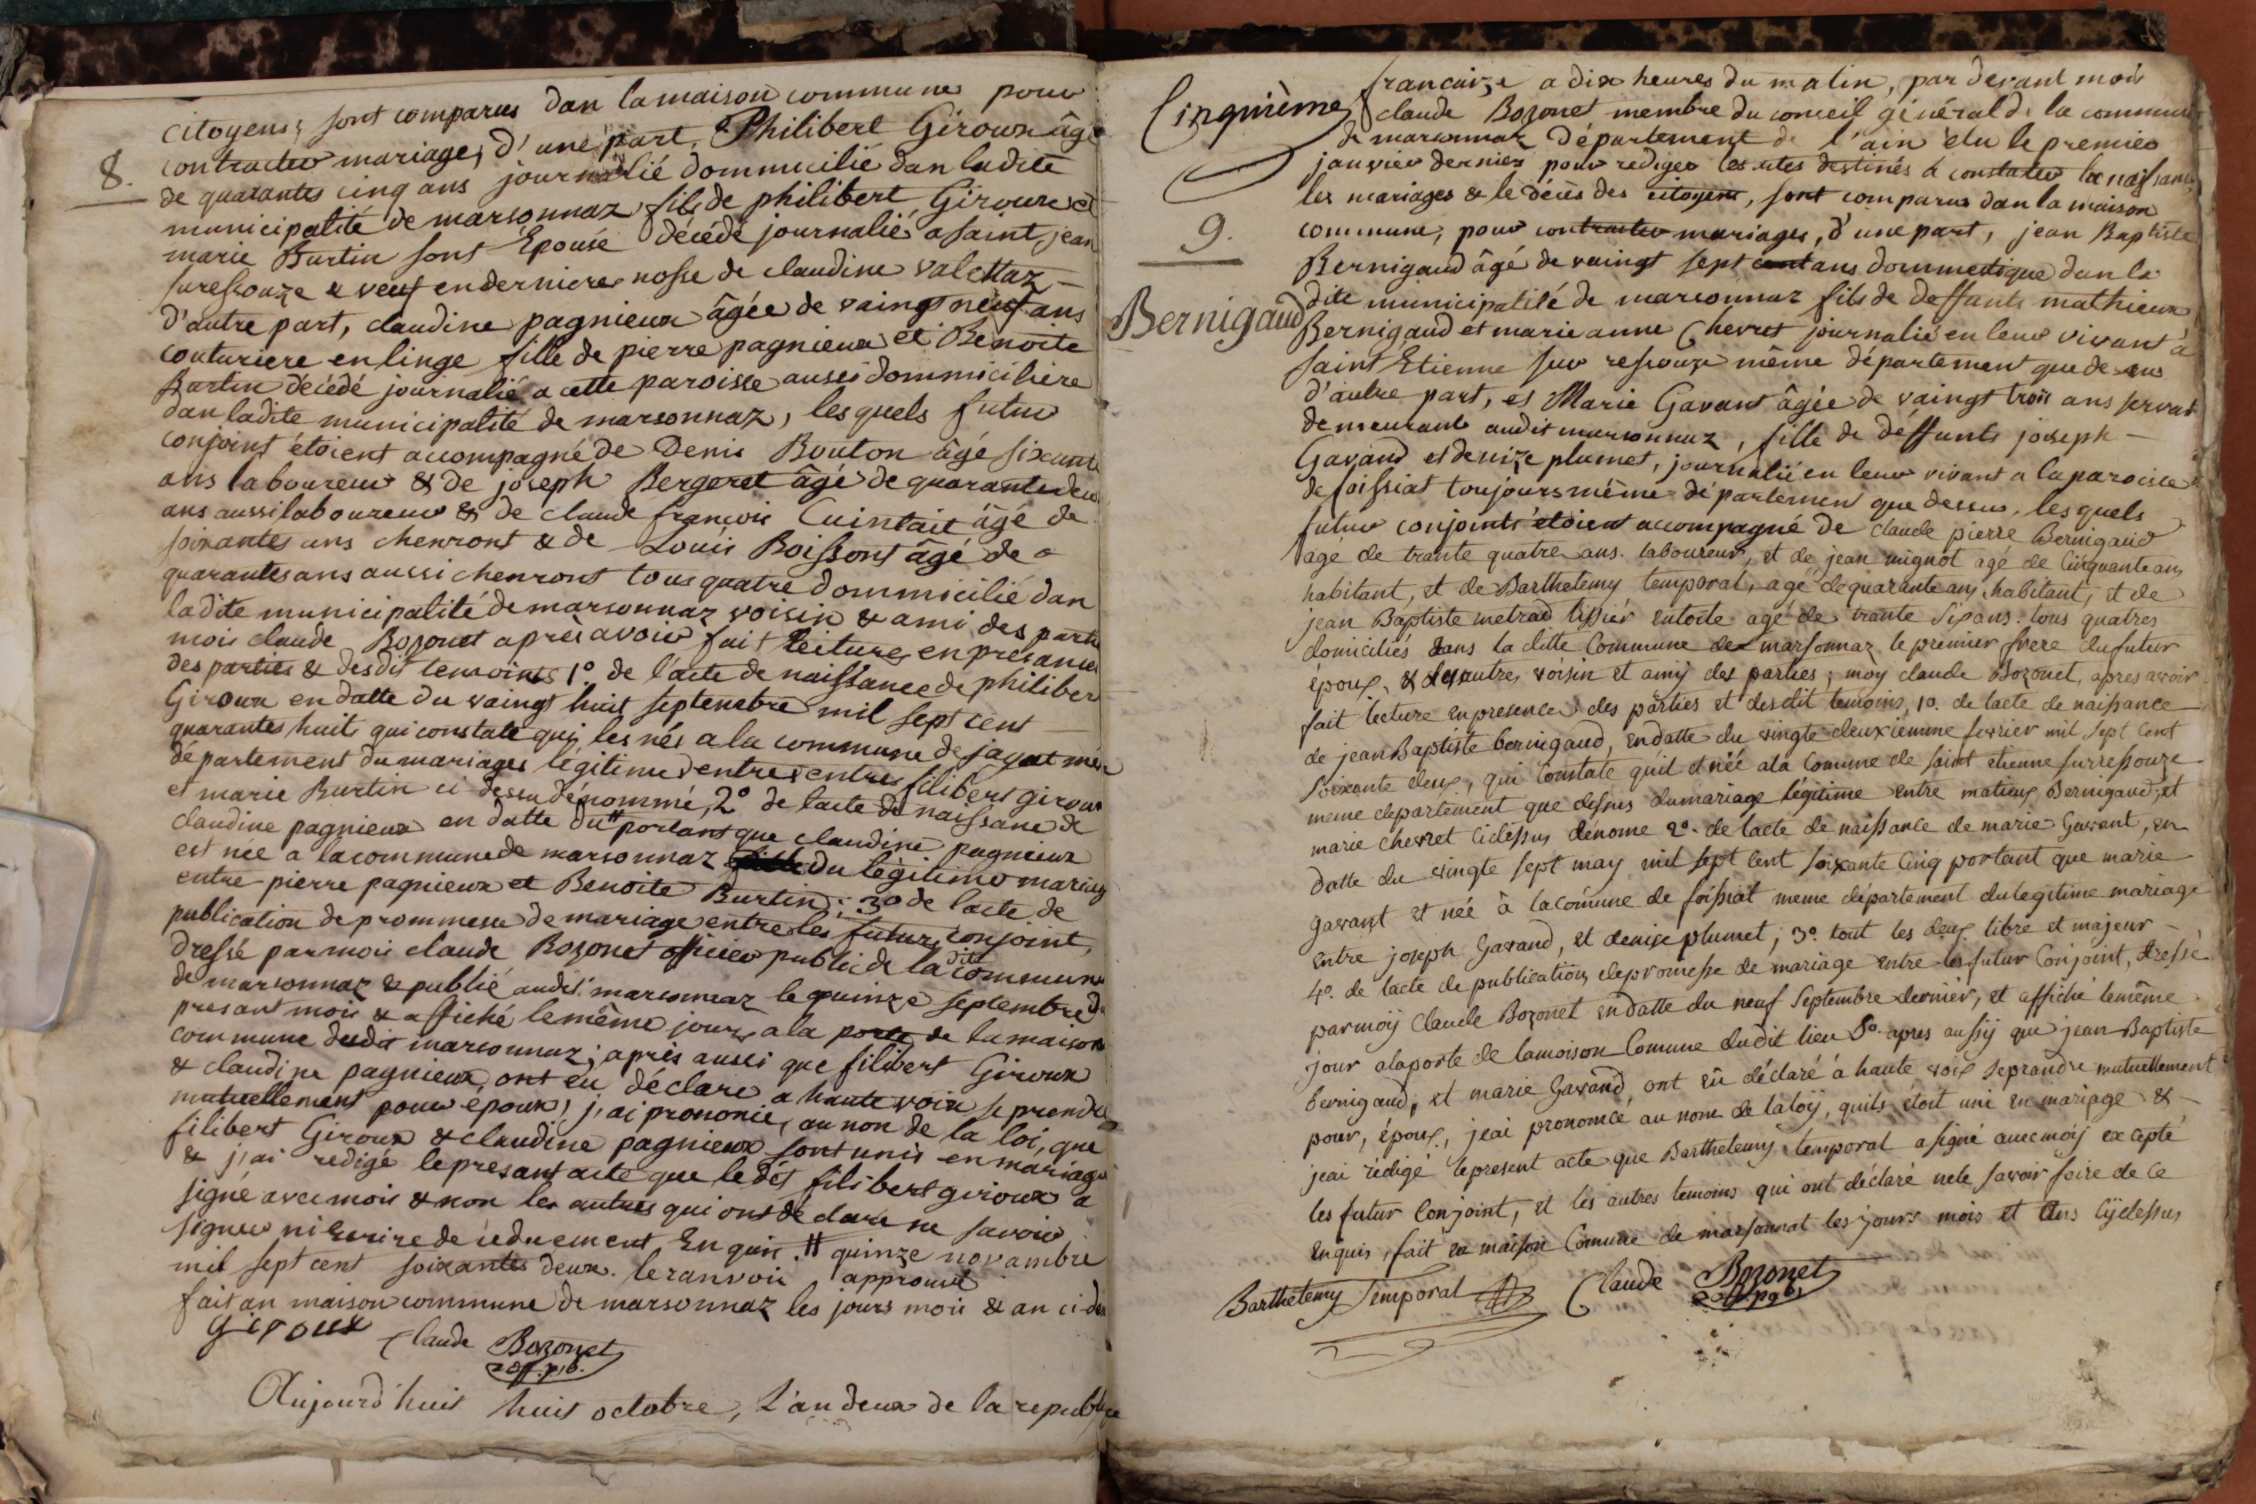 citoyens; sont comparus dan la maison commune pour
8. contracter mariage, d'une part, Philibert Giroux âgé
de quarantes cinq ans journalié dommicilié dan ladite
municipalité de marsonnaz, fils de philibert Giroux et
marie Burtin sont Epouse décédé journalié a saint jean
suressouze & veuf en derniere nosse de claudine valettaz
d'autre part, claudine pagnieux âgée de vaingt neuf ans
couturiere en linge fille de pierre pagnieux et Benoite
Burtin décédé journalié a cette paroisse aussi dommiciliere
dan ladite municipalité de marsonnaz, les quels futur
conjoint étoient accompagné de Denis Bouton âgé sixante
ans laboureur & de joseph Bergeret âgé de quarantedeux
ans aussi laboureur & de claude françois Cuintait âgé de
soixantes ans chenront & de Louis Boissont âgé de
quarantes ans aussi chenront tous quatre dommicilié dan
ladite municipalité de marsonnaz voisin & ami des partie
moi claude Bozonet après avoir fait leiture en presance
des parties & desdit temoints 1.° de l'acte de naissance de philibert
Giroux en datte du vaingt huit septembre mil sept cent
quarantes huit qui constate qui les nés a la commune de jayat même
département du mariages légitime d'entre entre filibert giroux
et marie Burtin ci dessu dénommé, 2° de lacte de naissane de
claudine pagnieux en datte du # portant que claudine pagnieux
est née a la commune de marsonnaz du légitimo mariag
entre pierre pagnieux et Benoite Burtin; 3° de lacte de
publication de prommesse de mariage entre les futurs conjoint,
dressé par moi claude Bozonet officier public de ladite commune
de marsonnaz & publié audit marsonnaz le quinze septembre du
presant mois & affiché le même jour a la porte de la maison
commune dudit marsonnaz; après aussi que filibert Giroux
& claudine pagnieux, ont eu déclare a haute voix se prendre
mutuellement pour epoux, j'ai prononcie, au non de la loi, que
filibert Giroux & claudine pagnieux sont unis en mariage
& j'ai redigé le presant acte que le dit filibert giroux a
signé avec moi & non les autres qui ont déclaré ne savoir
signer ni ecrire de ce duement Enquis. # quinze novambre
mil sept cent soixantes deux. le ranvoir approuvé
fait an maison commune de marsonnaz les jours mois & an ci-des
giroux Claude Bozonet
off. p.b.
Aujourd'huit huit octobre, L'an deux de la republique
francaize a dix heures du matin, par devant mois
Cinquième claude Bozonet membre du conseil général de la commune
de marsonnaz département de l'ain elu le premier
janvier dernier pour rediger les actes destinés à constater la naissance
les mariages & le décès des citoyens, sont comparus dan la maison
9. commune, pour contracter mariages, d'une part, jean Baptiste
Bernigaud âgé de vaingt sept ans dommestique dan la
Bernigaud dite municipalité de marsonnaz fils de deffunts mathieux
Bernigaud et marie anne Chevret journalié en leur vivant à
saint Etienne sur ressouze même département que de sus
d'autre part, et Marie Gavant âgée de vaingt trois ans servante
demeurant audit marsonnaz, fille de déffunts joseph
Gavand et denize plumet, journalié en leur vivant a la paroisse
de foissiat toujours même département que dessus, les quels
futur conjoints étoient accompagné de claude pierre Bernigaud
agé de trante quatre ans. laboureur, et de jean mignot agé de cinquante ans
habitant, et de Barthelemy temporal, agé de quarante ans, habitant, et de
jean Baptiste metrad tissier entoile agé de trante six ans. tous quatres
domiciliés dans la ditte Commune de marsonnaz. le premier frere du futur
époux, & les autres voisin et amis des parties, moy claude Bozonet, apres avoir
fait lecture en presence des parties et desdit temoins, 1°. de lacte de naissance
de jean Baptiste bernigaud, en datte du vingte deuxiemme fevrier mil sept cent
soixante deux, qui constate quil et néé ala Comune de saint etienne surressouze
meme departement que dessus du mariage légitime entre matieux Bernigaud, et
marie chevret cidessus denome 2°. de lacte de naissance de marie Gavant, en
datte du vingte sept may mil sept cent soixante cinq portant que marie
gavant et née à la comune de foissiat meme département du legitime mariage
entre joseph Gavand, et denise plumet; 3°. tout les deux libre et majeur
4°. de lacte de publication, de promesse de mariage entre les futur conjoint, dressé
par moÿ Claude Bozonet en datte du neuf septembre derniér, et affiché lemême
jour alaporte de lamaison Comune dudit lieu 5°. apres aussy que jean Baptiste
bernigaud, et marie Gavand, ont eü déclaré à haute voix seprandre mutuellement
pour, époux, jeai prononcé au nom de laloÿ, quils étoit uni en mariage &
jeai rédigé lepresent acte que Barthelemy temporal a signé avec moÿ excepté
les futur Conjoint, et les autres temoins qui ont déclaré nele savoir faire de ce
enquis, fait en maison Comune de marsonnat les jours mois et ans cÿdessus
Barthelemy Temporal Claude Bozonet
off. p.b.